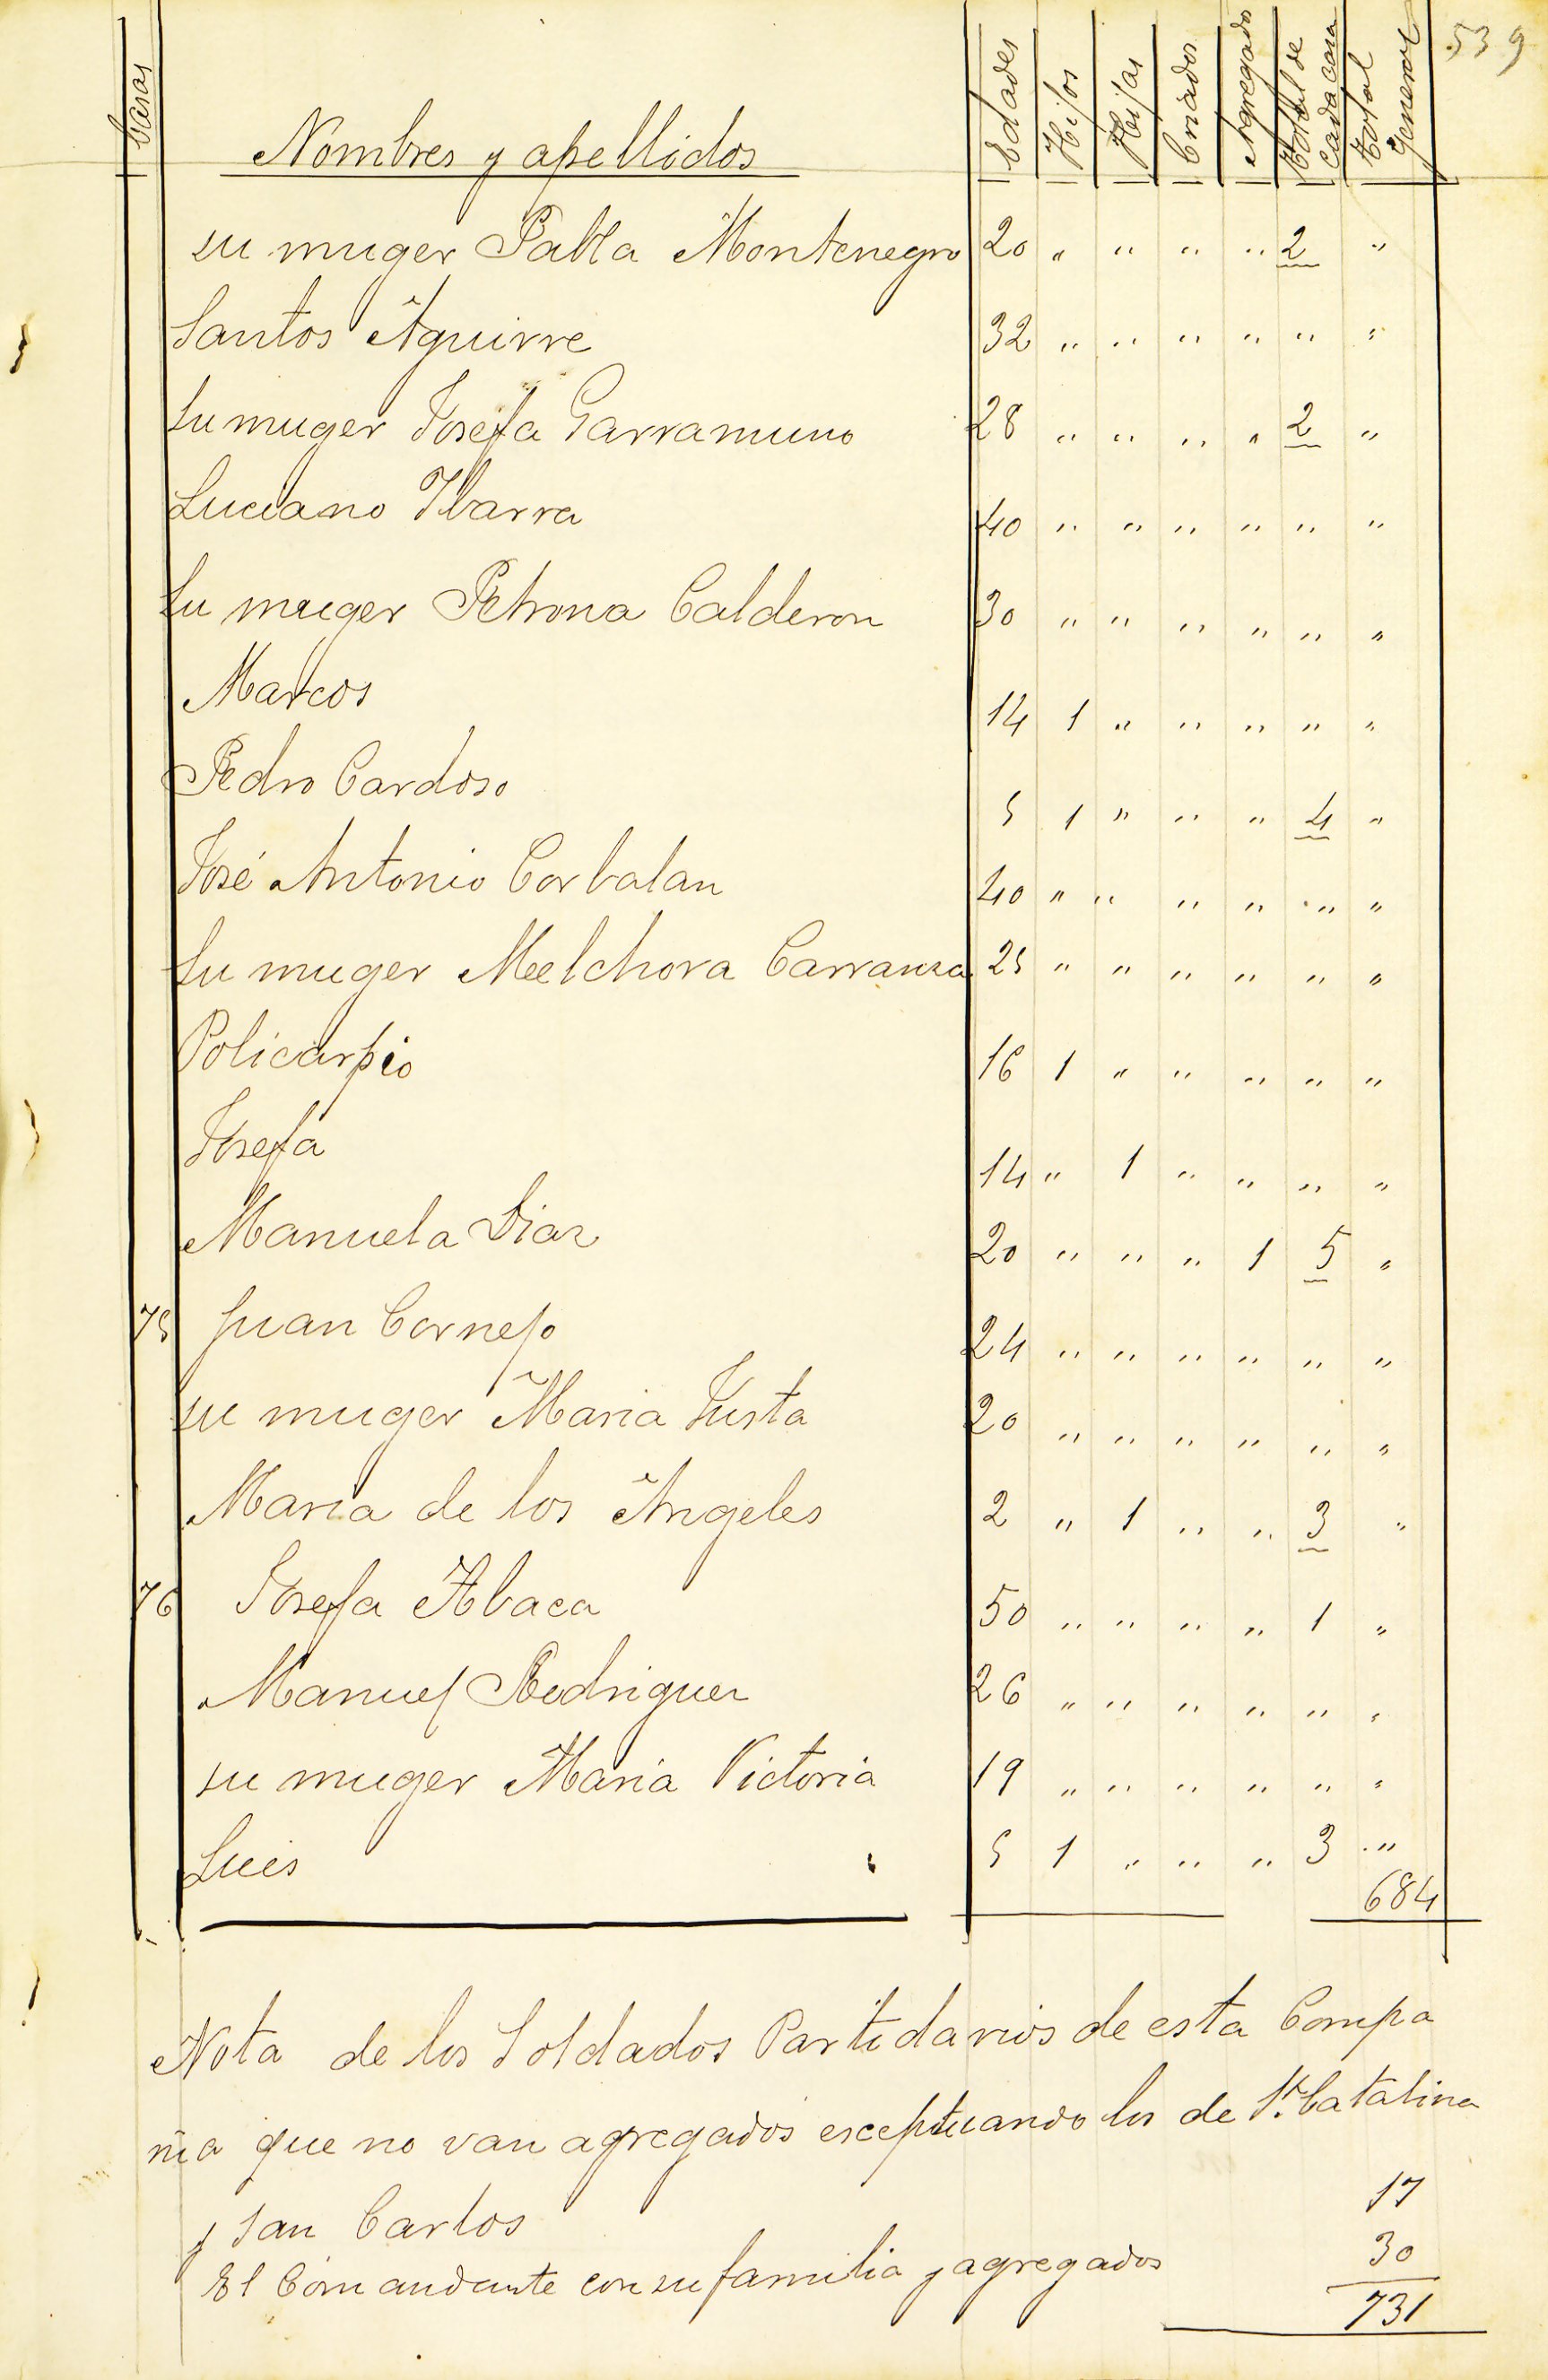 539
Casas Nombres y apellidos Edades Hijos Hijas Criados Agregados Total de cada casa Total General
su muger Pabla Montenegro 20 " " " " 2 "
Santos Aguirre 32 " " " " " "
Su muger Josefa Garramuno 28 " " " " 2 "
Luciano Ibarra 40 " " " " " "
Su muger Petrona Calderon 30 " " " " " "
Marcos 14 1 " " " " "
Pedro Cardoso 5 1 " " " 4 "
José Antonio Corbalan 40 " " " " " "
Su muger Melchora Carranza 25 " " " " " "
Policarpio 16 1 " " " " "
Josefa 14 " 1 " " " "
Manuela Diaz 20 " " " 1 5 "
75 Juan Cornejo 24 " " " " " "
su muger Maria Justa 20 " " " " " "
Maria de los Angeles 2 " 1 " " 3 "
76 Josefa Abaca 50 " " " " 1 "
Manuel Rodriguez 26 " " " " " "
su muger Maria Victoria 19 " " " " " "
Luis 5 1 " " " 3 "
684
Nota de los Soldados Partidarios de esta Compa
ñia que no van agregados esceptuando los de Sta. Catalina
y San Carlos 17
El Comandante con su familia y agregados 30
731